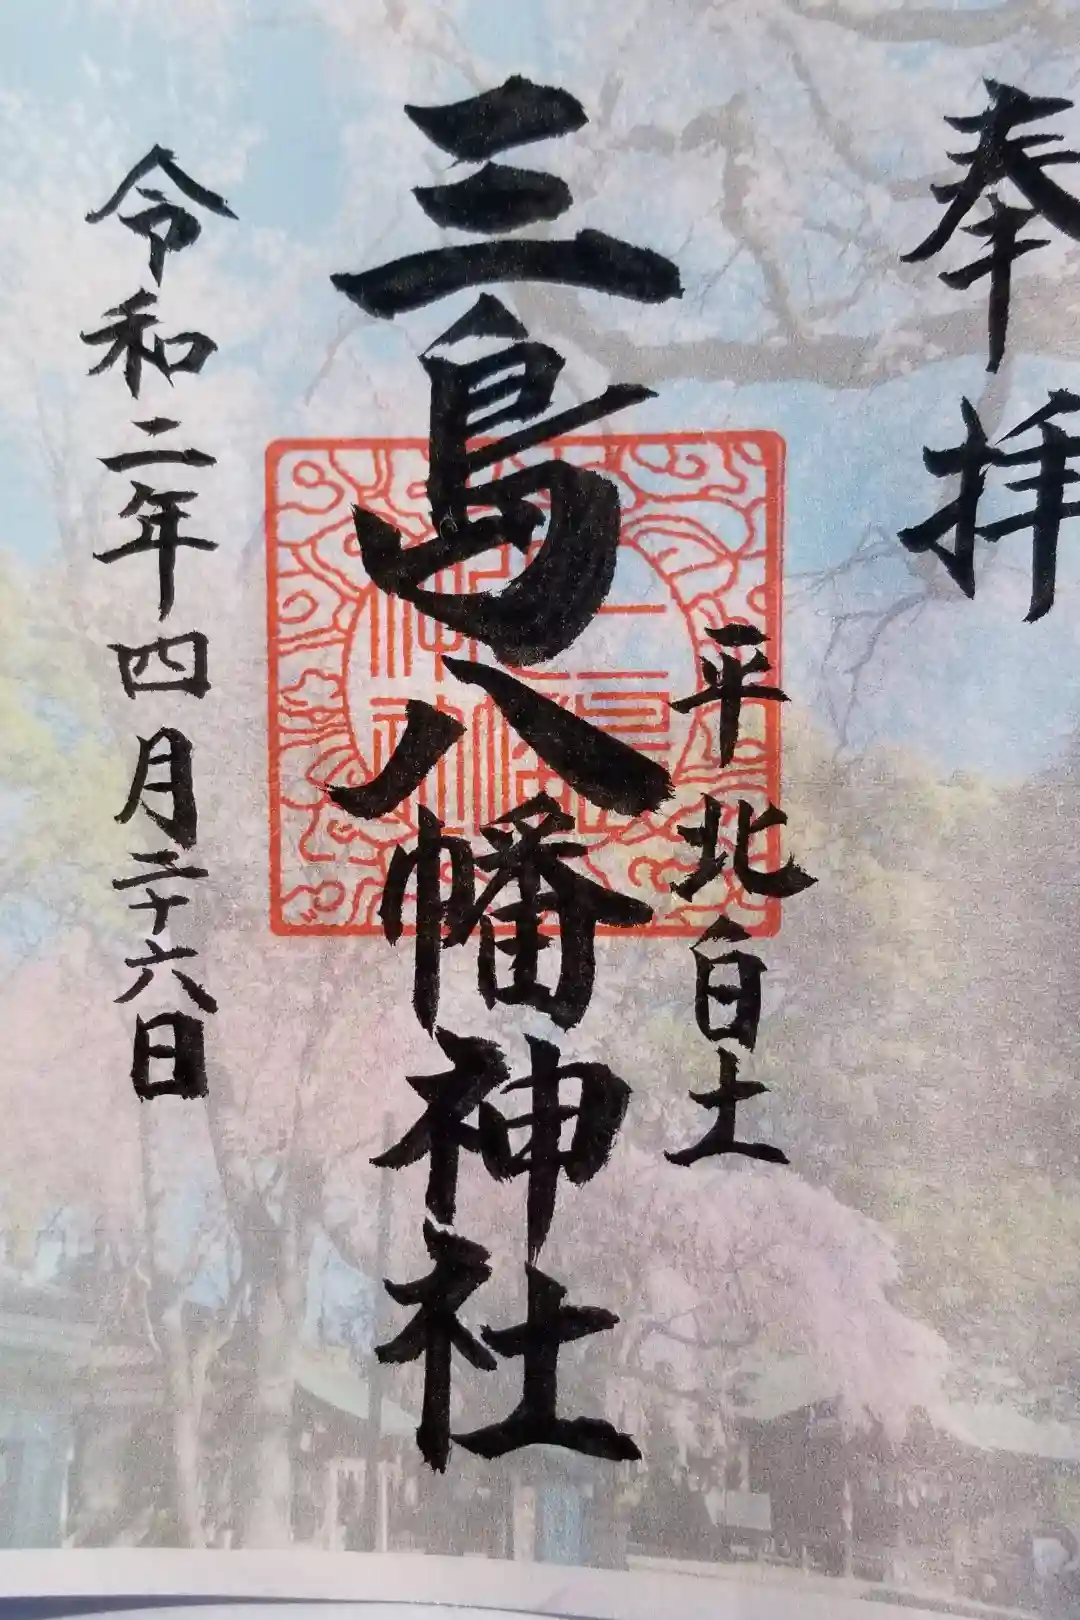 奉拝
平北白土
三島八幡神社
令和二年四月二十六日